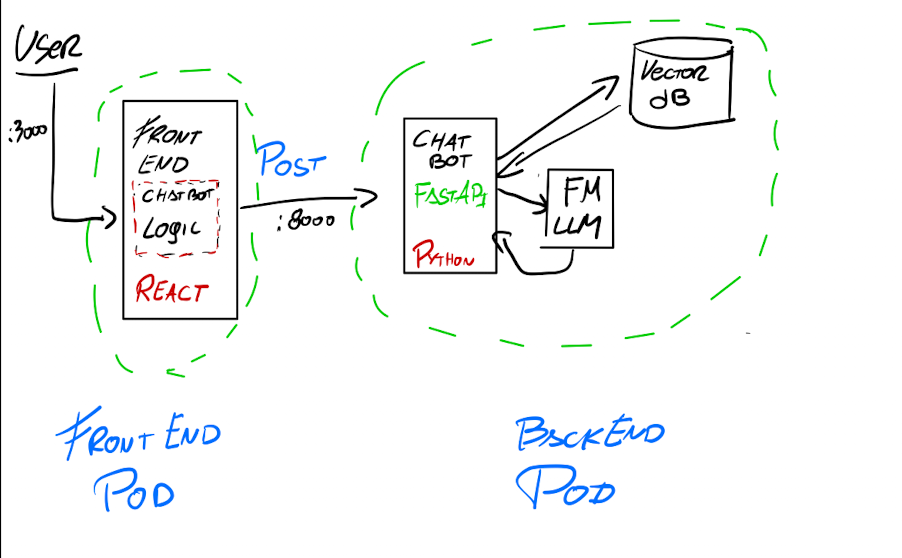 USER
:3000
FRONT
END
CHATBOT
LOGIC
REACT
POST
:8000
CHAT
BOT
FASTAPI
PYTHON
VECTOR
dB
FM
LLM
FRONT END
POD
BACKEND
POD